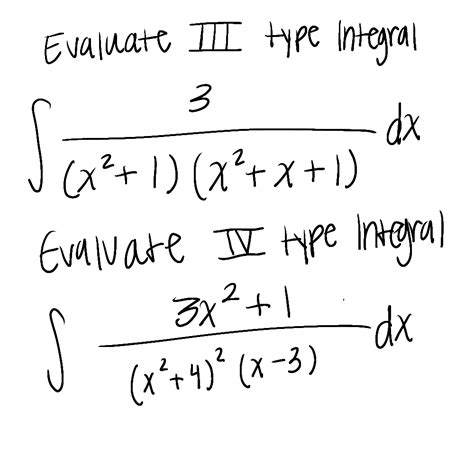 Evaluate III type Integral
∫ 3 / (x²+1)(x²+x+1) dx
Evaluate IV type Integral
∫ 3x²+1 / (x²+4)² (x-3) dx